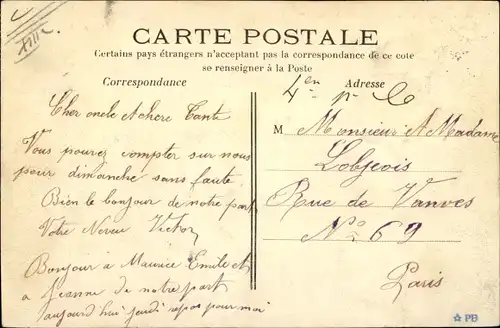 CARTE POSTALE
Certains pays étrangers n'acceptant pas la correspondance de ce cote
se renseigner à la Poste
Correspondance
Adresse
Cher oncle et chere Tante
Vous pouvez compter sur nous
pour dimanche sans faute
Bien le bonjour de notre part
Votre Neveu Victor
Bonjour à Maurice Emile et
a Jeanne de notre part
aujourd'hui jeudi repos pour moi
M Monsieur et Madame
Lobjeois
Rue de Vanves
No 69
Paris
PB